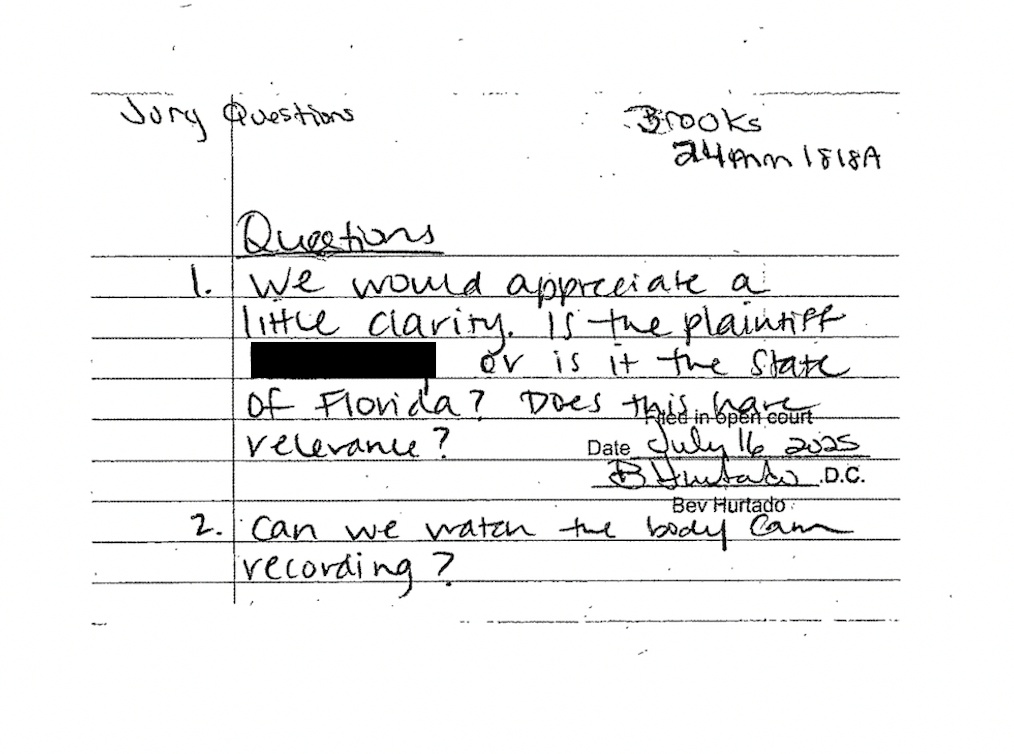 Jury Questions
Brooks
24mm1818A
Questions
1. We would appreciate a
little clarity. Is the plaintiff
or is it the State
of Florida? Does this have
Filed in open court
relevance?
Date July 16 2025
B Hurtado D.C.
Bev Hurtado
2. Can we watch the body cam
recording?